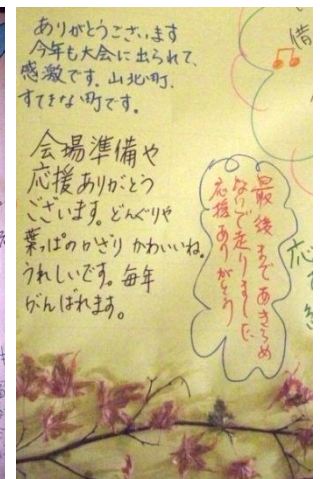 ありがとうございます
今年も大会に出られて、
感激です。山北町、
すてきな町です。
会場準備や
応援ありがとう
ございます。どんぐりや
葉っぱのかざり かわいいね。
うれしいです。毎年
がんばれます。
最後まであきらめ
ないで走りました
応援ありがとう
備
応